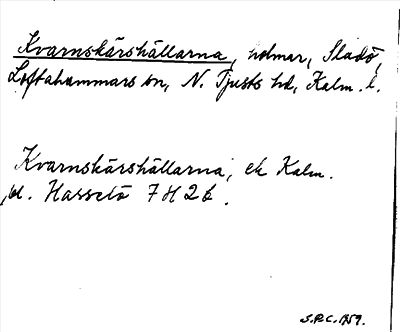 Kvarnskärshällarna, holmar, Sladö,
Loftahammars sn, N. Tjusts hd, Kalm. l.
Kvarnskärshällarna, ek Kalm.
bl. Hasselö 7 H 2 b.
S.R.C. 1959.